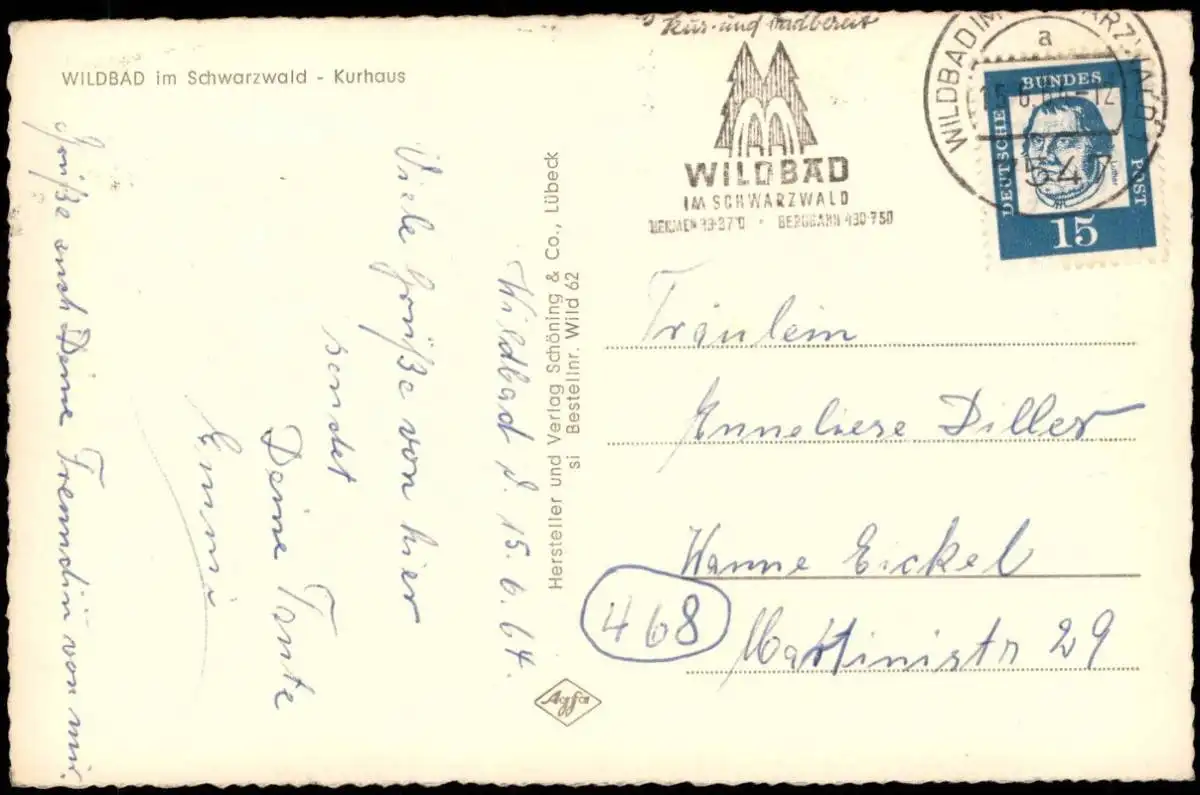 WILDBAD im Schwarzwald - Kurhaus
Wildbad d. 15.6.64.
Viele Grüße von hier
sendet
Deine Tante
Emmi
Grüße auch Deine Freundin von mir.
Hersteller und Verlag Schöning & Co., Lübeck
si Bestellnr. Wild 62
Agfa
Kur- und Badbereit
WILDBAD
IM SCHWARZWALD
THERMEN 33-37° · BERGBAHN 430-750
WILDBAD IM SCHWARZWALD
a
15.6.64-12
7547
DEUTSCHE BUNDES POST
15
Fräulein
Anneliese Diller
468
Wanne Eickel
Martinistr 29